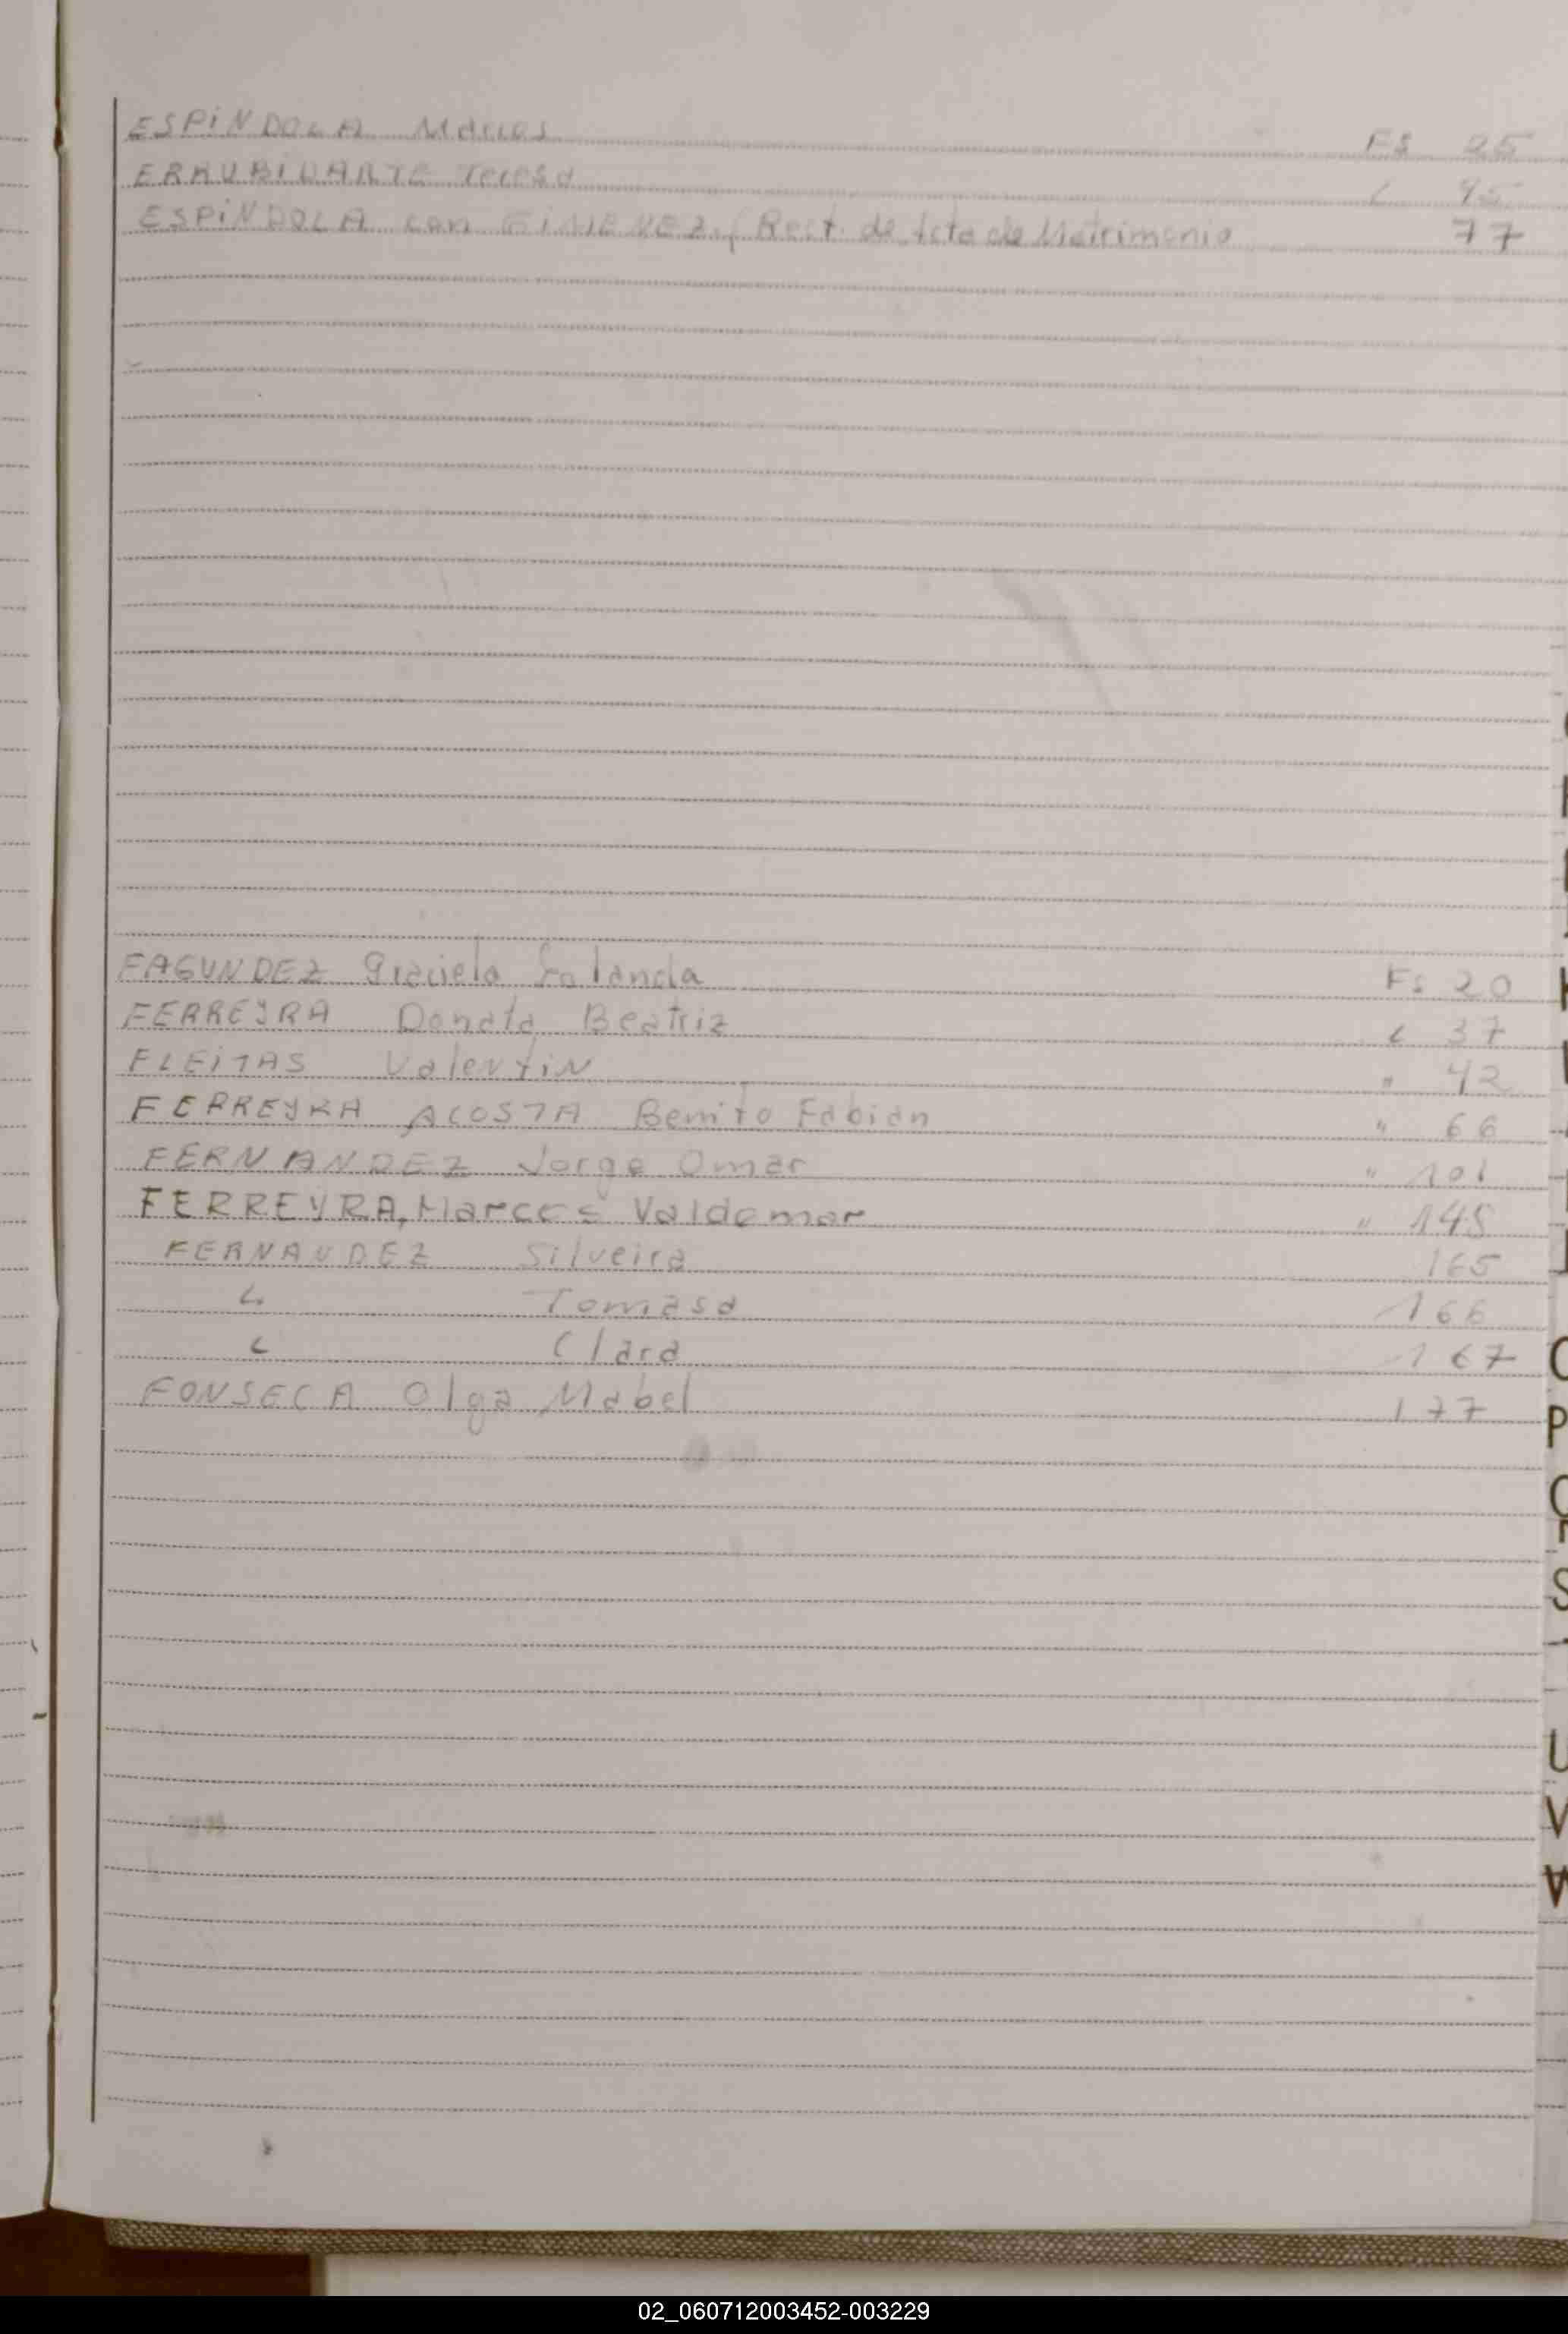 ESPINDOLA Marcos Fs 25
ERRUBIDARTE Teresa " 45
ESPINDOLA con GIMENEZ, Rect. de Acta de Matrimonio 77
FAGUNDEZ Graciela Fs 20
FERREYRA Donata Beatriz " 37
FLEITAS Valentin " 42
FERREYRA ACOSTA Benito Fabian " 66
FERNANDEZ Jorge Omar " 101
FERREYRA, Marcos Valdemar " 145
FERNANDEZ Silveira 165
" Tomasa 166
" Clara 167
FONSECA Olga Mabel 177
O
P
S
U
V
W
02_060712003452-003229